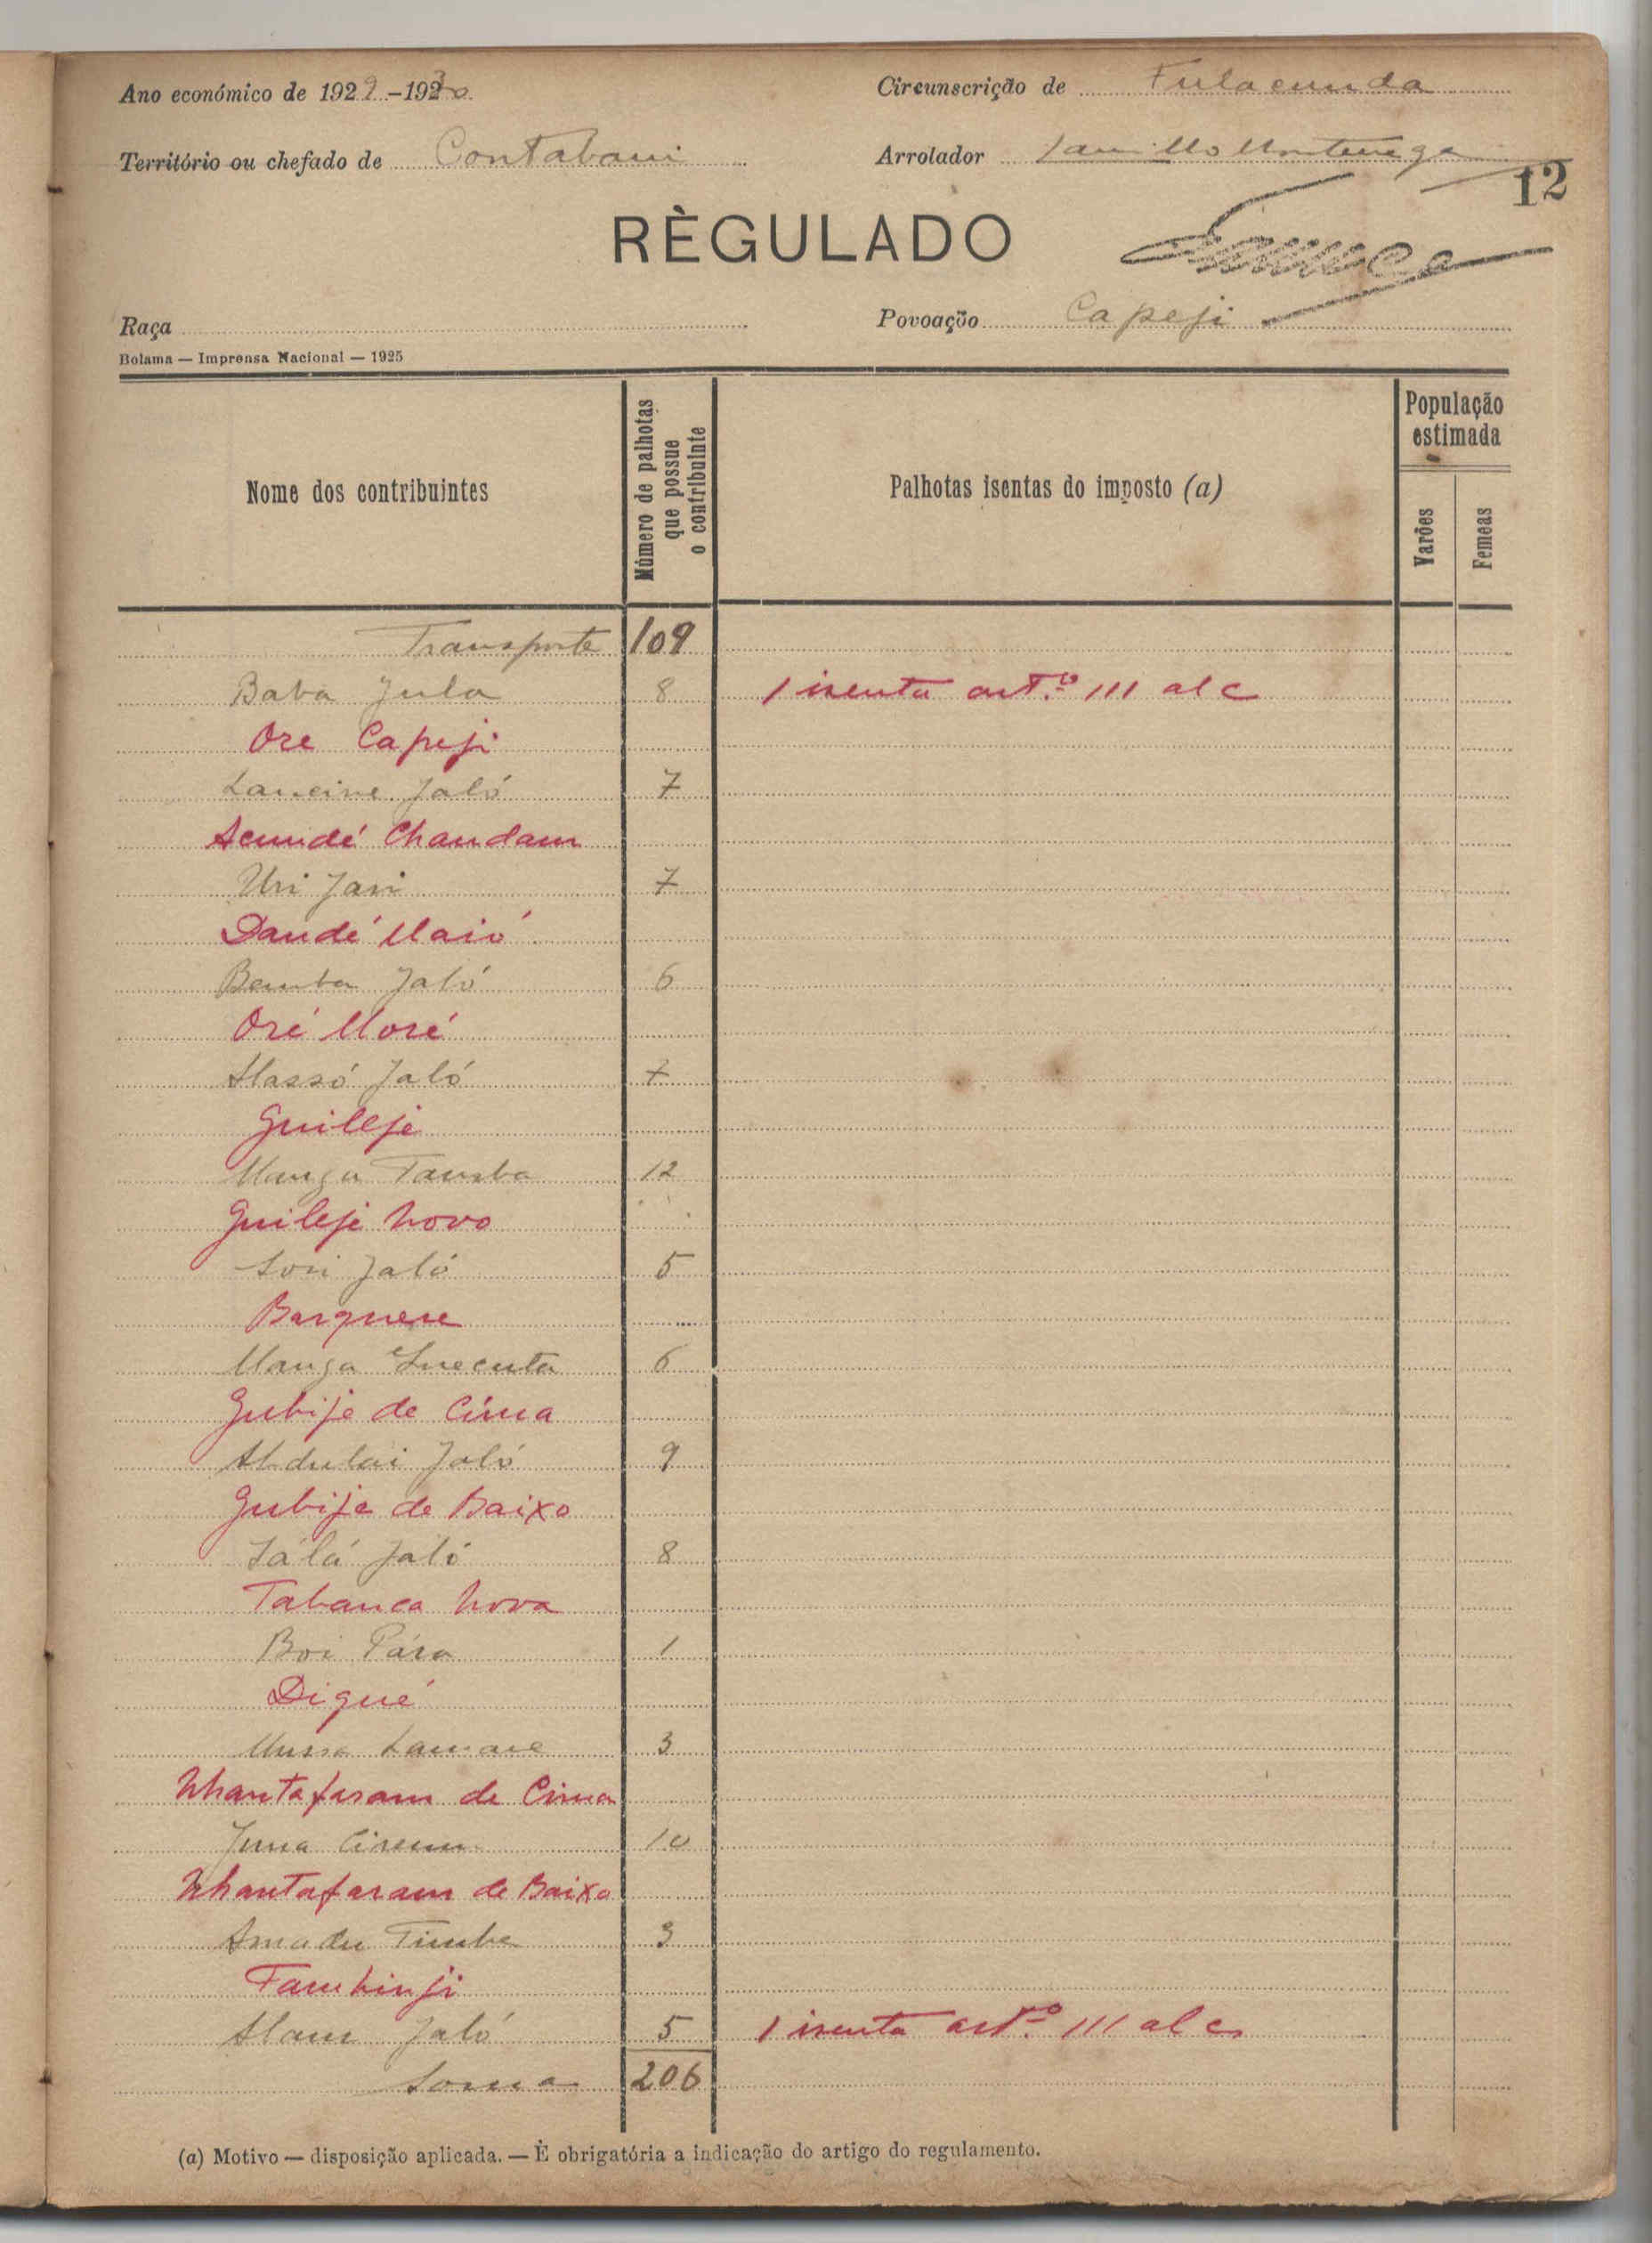 Ano económico de 1929-1930
Circunscrição de Fulacunda
Território ou chefado de Contabani
Arrolador
12
RÈGULADO
Raça
Povoação Capeji
Bolama — Imprensa Nacional — 1925
Nome dos contribuintes
Número de palhotas que possue o contribuinte
Palhotas isentas do imposto (a)
População estimada
Varões
Femeas
Transporte 109
Baba Jula 8 1 isenta art.º 111 al c
Ore Capeji
Lanceine Jaló 7
Acundé Chandam
Uri Jari 7
Dandé Maió
Bemba Jaló 6
Oré Moré
Alassó Jaló 7
Guileje
Manga Tamba 12
Guileje novo
Sori Jaló 5
Barquere
Manga Suecuta 6
Gubije de Cima
Abdulai Jaló 9
Gubije de Baixo
Sálá Jaló 8
Tabanca nova
Boi Pára 1
Digué
Mussa Camare 3
Nhantafaram de Cima
Juma 10
Nhantafaram de Baixo
Amadu Timbo 3
Tambinji
Alam Jaló 5 1 isenta art.º 111 al c
Soma 206
(a) Motivo — disposição aplicada. — È obrigatória a indicação do artigo do regulamento.